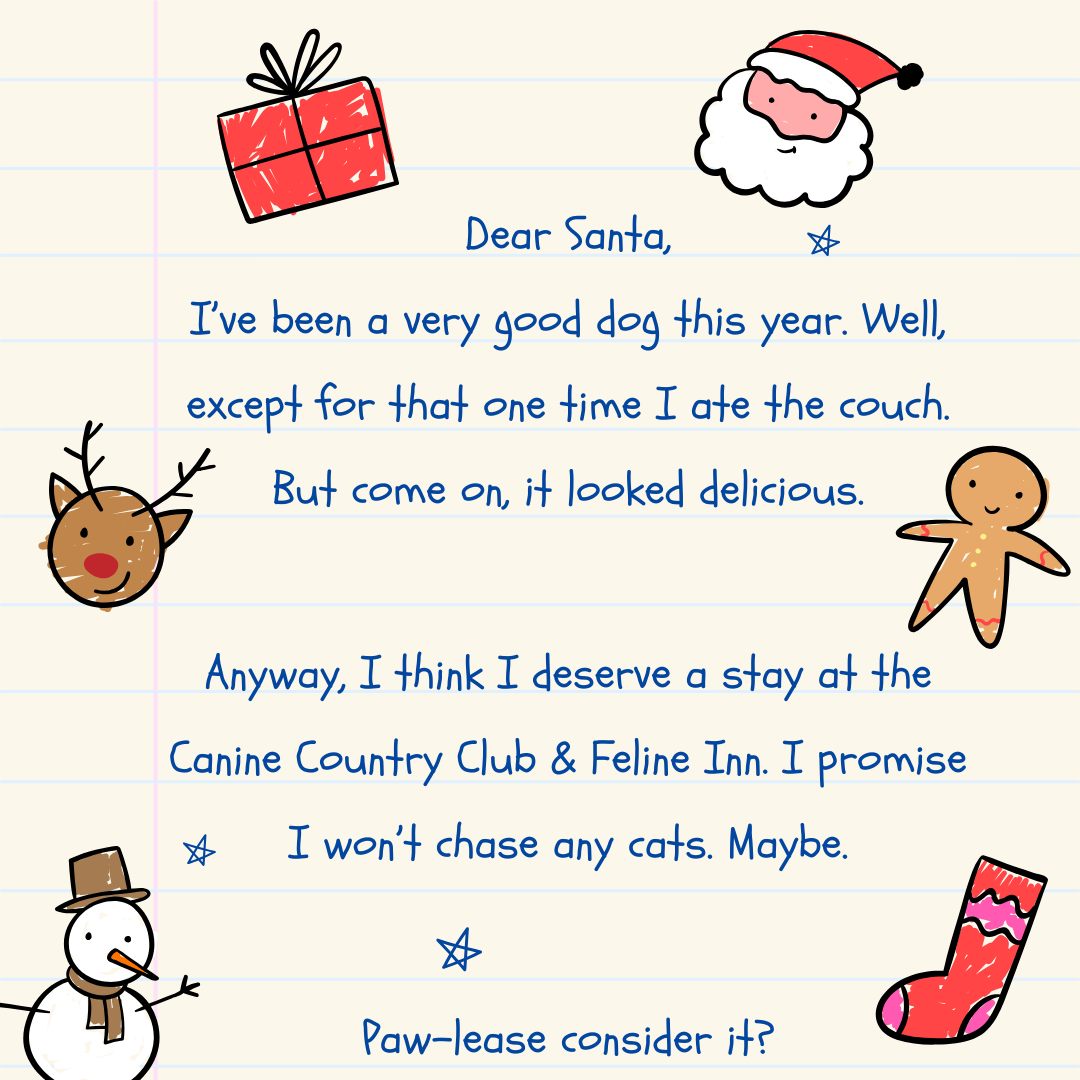 Dear Santa,
I've been a very good dog this year. Well,
except for that one time I ate the couch.
But come on, it looked delicious.
Anyway, I think I deserve a stay at the
Canine Country Club & Feline Inn. I promise
I won't chase any cats. Maybe.
Paw-lease consider it?